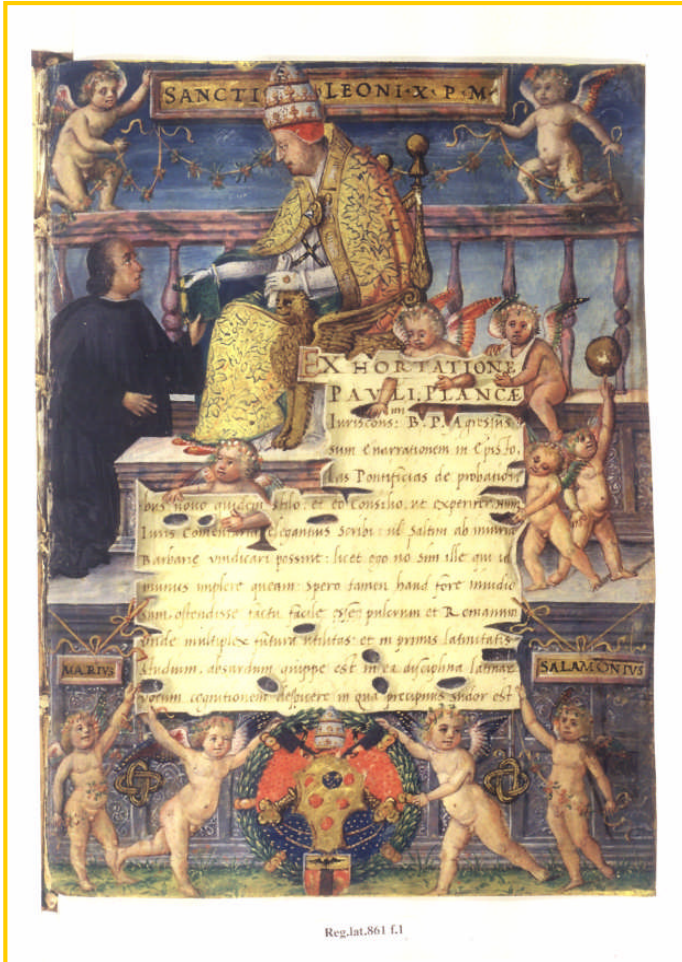 SANCTI LEONI·X·P·M·
EXHORTATIONE
PAVLI. PLANCÆ
Iuriscons: B. P. Agressus
sum enarrationem in Episto,
las Pontificias de probatiōi
bus nouo quidem stilo, et eo consilio, ut experirer num
Iuris Comentaria elegantius scribi: uel saltim ab iniuria
Barbarie uindicari possint: licet ego nō sim ille qui id
munus implere queam: spero tamen haud fore inuidio
sum, ostendisse factu facile esse, pulcrum et Romanum
unde multiplex futura utilitas: et in primis latinitatis
studium. absurdum quippe est in ea disciplina latinar
uocum cognitionem despicere in qua precipuus sudor est
MARIVS
SALAMONIVS
Reg.lat.861 f.1